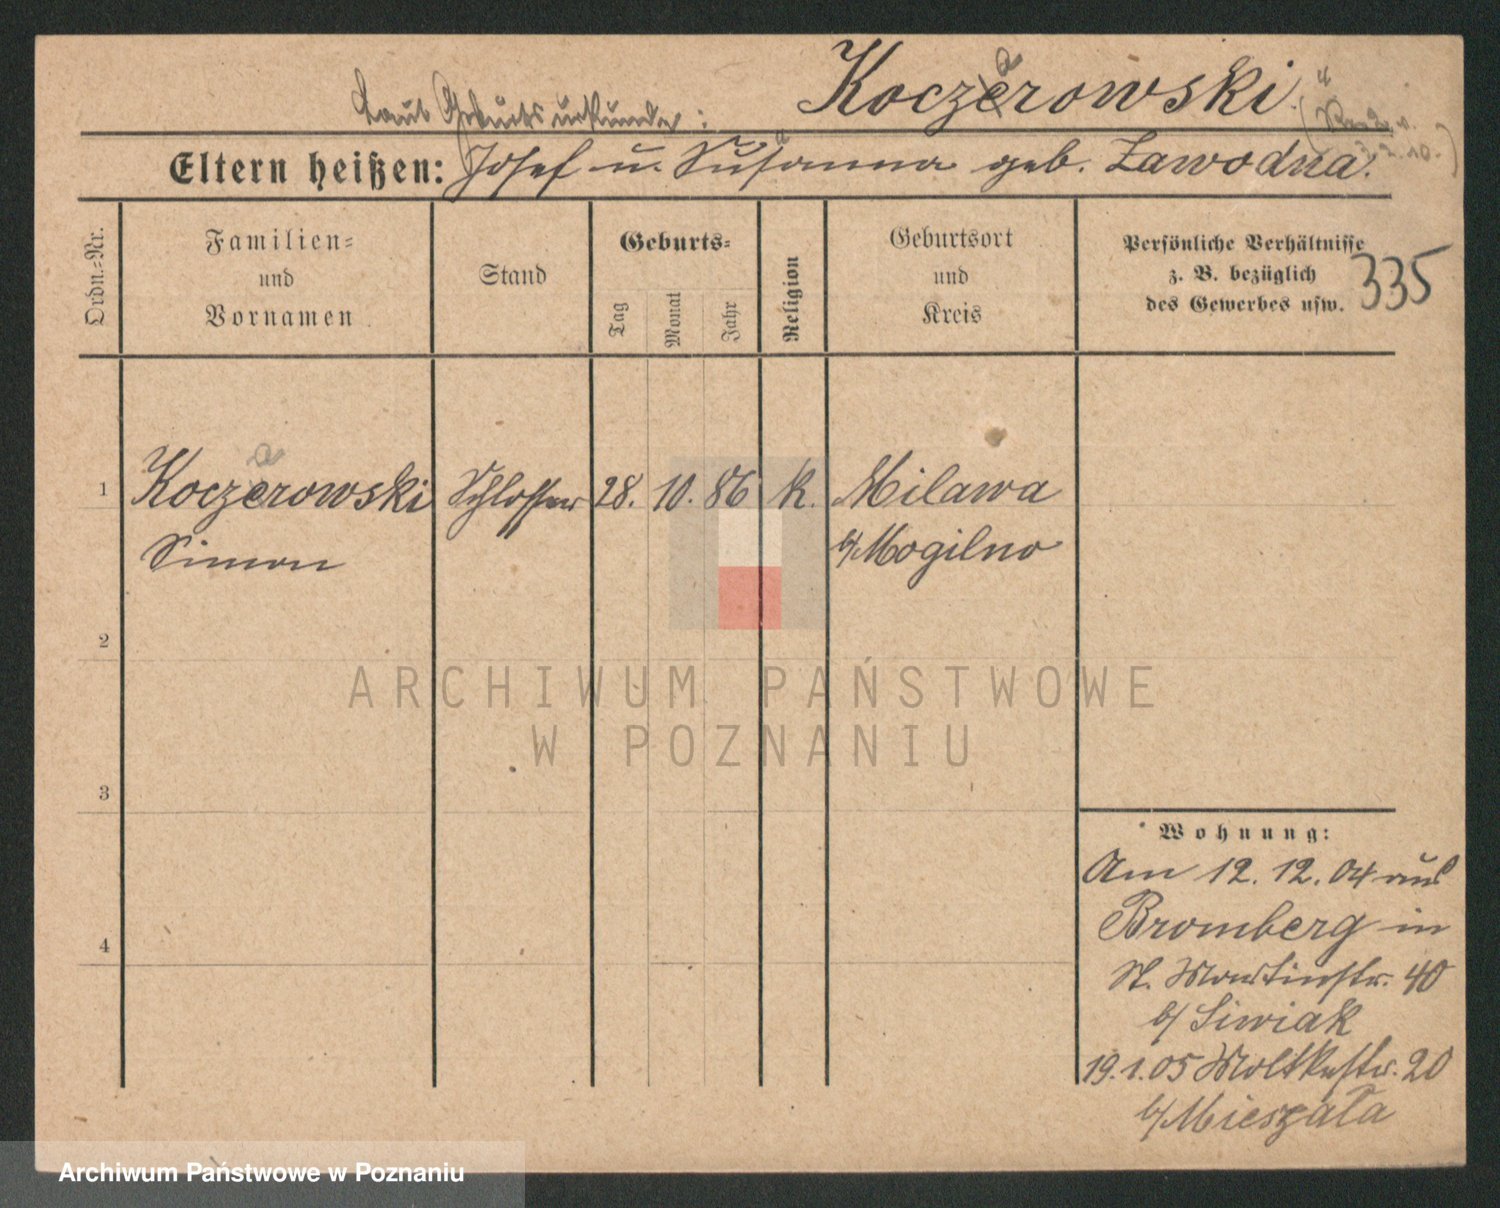 Laut Geburtsurkunde: Koczerowski.
a
Eltern heißen: Josef u. Susanna geb. Zawodna.
Ordn.-Nr.
Familien- und Vornamen
Stand
Geburts-
Tag
Monat
Jahr
Religion
Geburtsort und Kreis
Persönliche Verhältnisse
z. B. bezüglich
des Gewerbes usw.
335
a
1 Koczerowski Schlosser 28. 10. 86 k. Milawa
Simon b/Mogilno
2
3
4
Wohnung:
Am 12. 12. 04 aus
Bromberg in
St. Martinstr. 40
b/ Siwiak
19. 1. 05 Moltkestr. 20
b/ Mieszala
ARCHIWUM PAŃSTWOWE
W POZNANIU
Archiwum Państwowe w Poznaniu